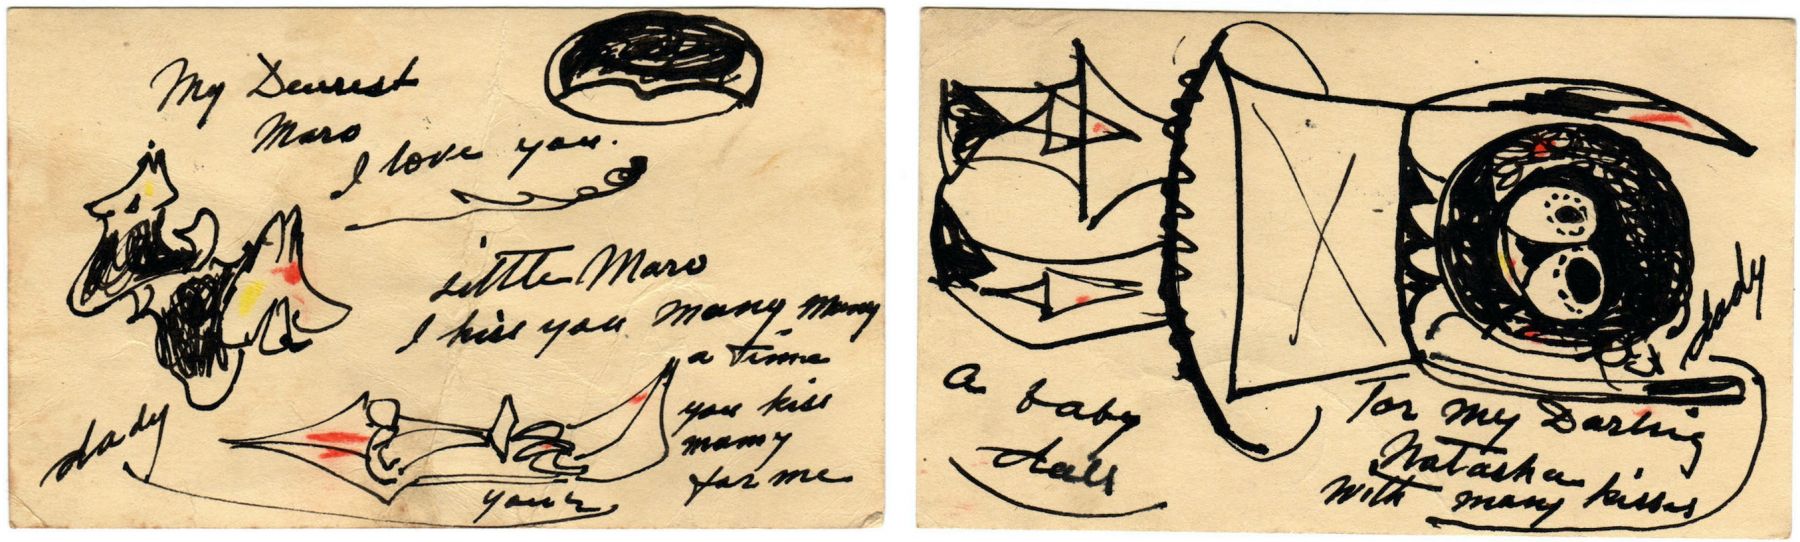 My Dearest
Maro
I love you.
Little Maro
I kiss you many many
a time
you kiss
mamy
for me
your
dady
A baby
dall
dady
For my Darling
Natasha
With many kisses